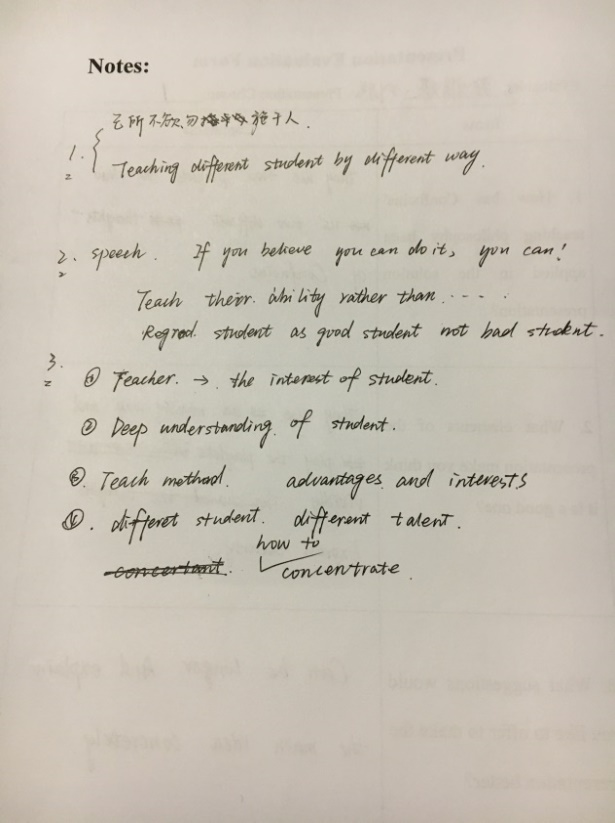 Notes:
己所不欲,勿施于人.
1. Teaching different student by different way.
2. speech. If you believe you can do it, you can!
Teach theior. ability rather than .....
Regrod. student as good student not bad student.
3. ① Teacher. → . the interest of student.
② Deep understanding of student.
③. Teach method. advantages and interests
④. differet student. different talent.
how to
concentrate.